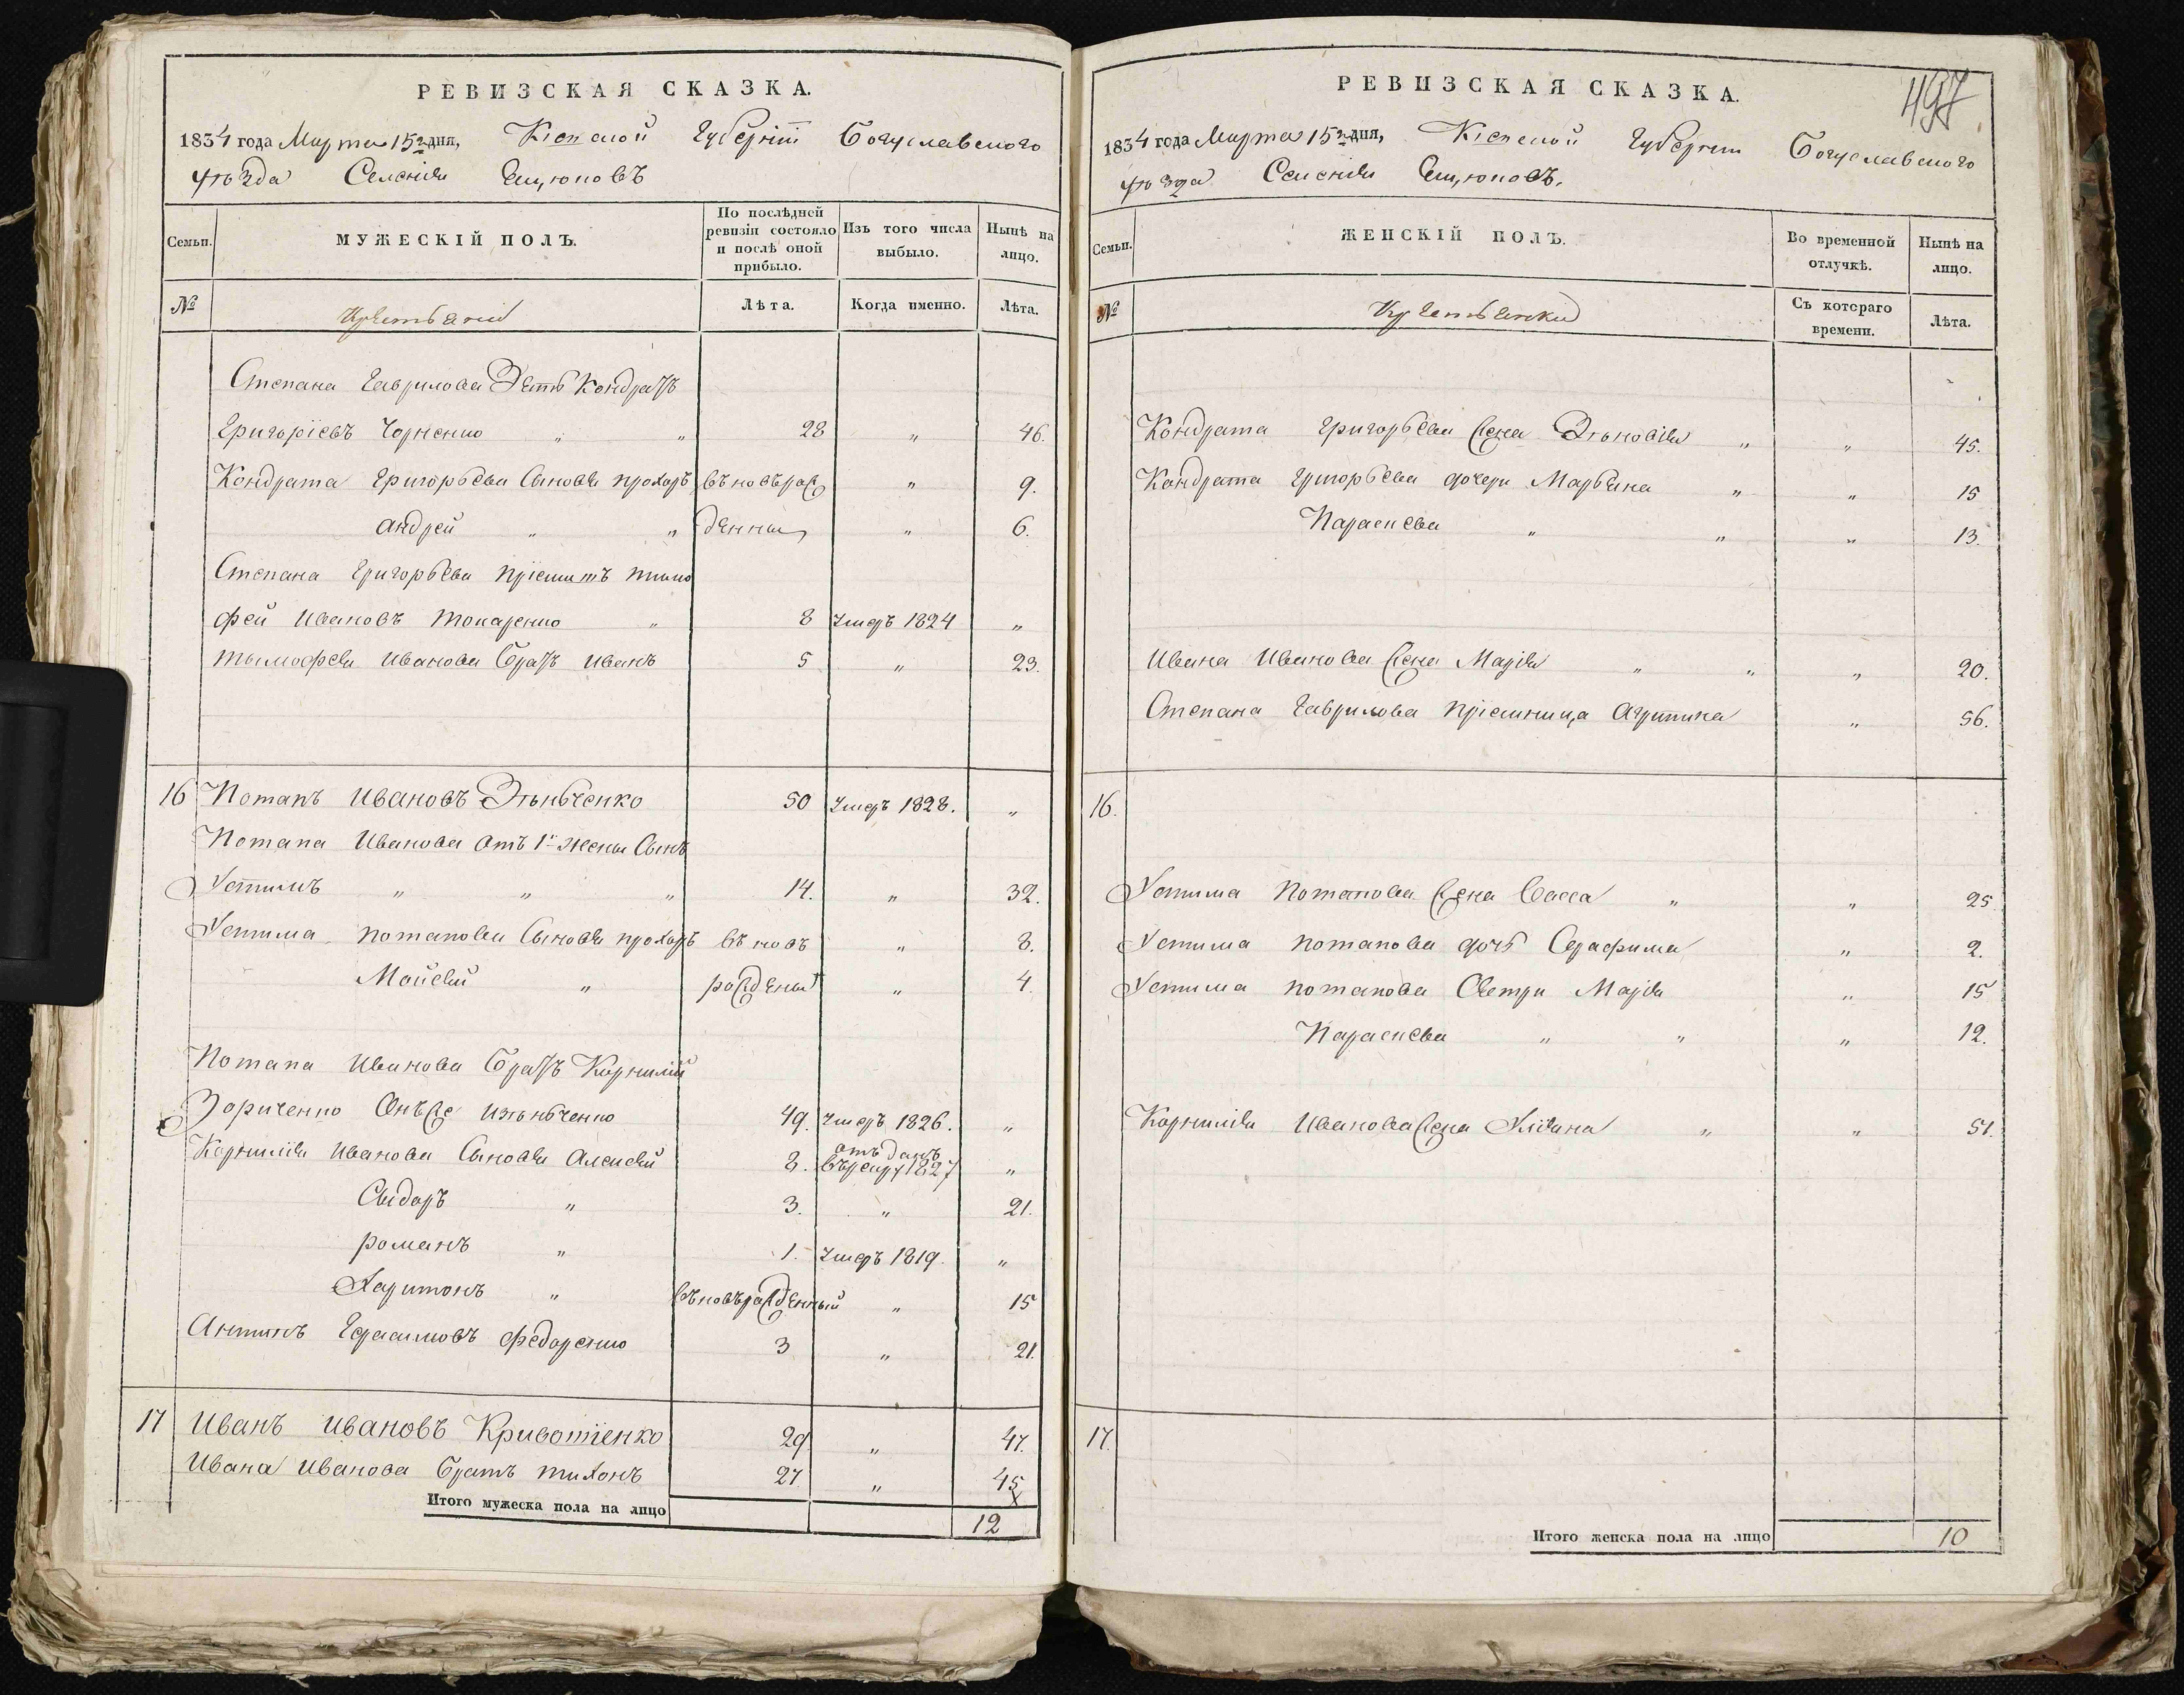 РЕВИЗСКАЯ СКАЗКА.
1834 года Марта 15го дня, Кіевской Губерніи Богуславскаго
уѣзда Селенія Емцюповъ
Семьи. МУЖЕСКІЙ ПОЛЪ. По послѣдней ревизіи состояло и послѣ оной прибыло. Изъ того числа выбыло. Нынѣ на лицо.
№ Крестьяне Лѣта. Когда именно. Лѣта.
Степана Гаврилова Зять Кондратъ
Григоріевъ Чорненко " " 28 " 46.
Кондрата Григорьева Сыновья прохоръ въновърож " 9.
андрей " " денны " 6.
Степана Григорьева пріемышъ тимо
фей Ивановъ токаренко " 8 Умеръ 1824 "
тымофея Иванова Братъ Иванъ 5 " 23.
16 Потапъ Ивановъ Зѣньченко 50 Умеръ 1828. "
Потапа Иванова отъ 1й жены Сынъ
Устимъ " " " 14. " 32.
Устима потапова Сыновья прохоръ въ новъ " 8.
Мойсей " рождены " 4.
Потапа Иванова Братъ Корнилій
Зориченко Онъже изѣньченко 49. Умеръ 1826. "
Корнилія Иванова Сыновья Алексей 8. отъданъ върекру 1827 "
Сыдоръ " 3. " 21.
романъ " 1. Умеръ 1819. "
Харитонъ " въновърожденный " 15
Антипъ Герасимовъ федоренко 3 " 21.
17 Иванъ Ивановъ Кривошіенко 29 " 47.
Ивана Иванова Братъ тихонъ 27. " 45
Итого мужеска пола на лицо 12
497
РЕВИЗСКАЯ СКАЗКА.
1834 года Марта 15го дня, Кіевской Губерніи Богуславскаго
уѣзда Селенія Емцюповъ.
Семьи. ЖЕНСКІЙ ПОЛЪ. Во временной отлучкѣ. Нынѣ на лицо.
№ Крестьянки Съ котораго времени. Лѣта.
Кондрата Григорьева Жена Зѣновія " " 45.
Кондрата Григорьева дочери Марьяна " " 15
Параскева " " " 13.
Ивана Иванова Жена Марія " " " 20.
Степана Гаврилова пріемница Агрипина " 56.
16.
Устима Потапова Жена Васса " " 25
Устима потапова дочь Серафима " 2.
Устима потапова Сестри Марія " 15
Параскева " " " 12.
Корнилія Иванова Жена Уліяна " " 51.
17.
Итого женска пола на лицо 10